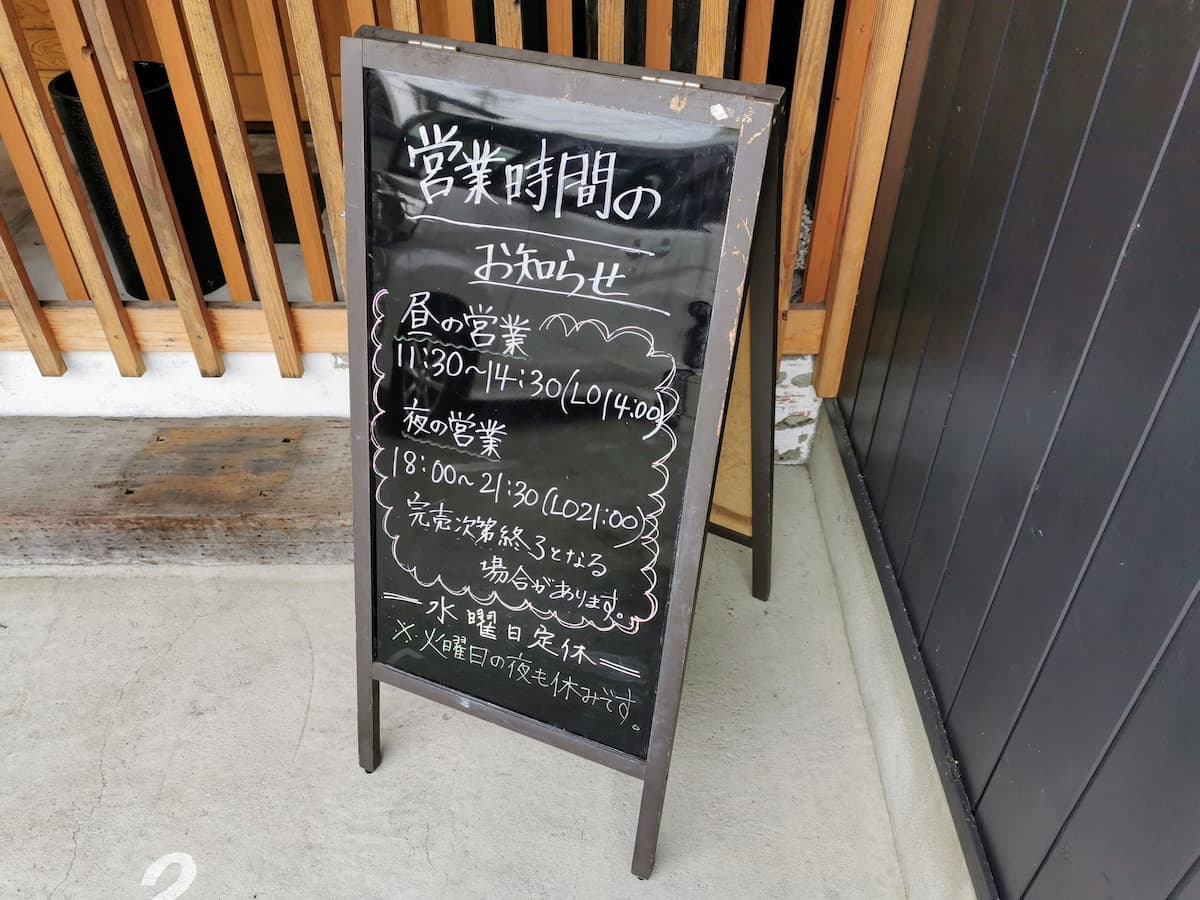 営業時間の
お知らせ
昼の営業
11:30〜14:30(LO14:00)
夜の営業
18:00〜21:30(LO21:00)
完売次第終了となる
場合があります。
=水曜日定休=
※火曜日の夜も休みです。
2